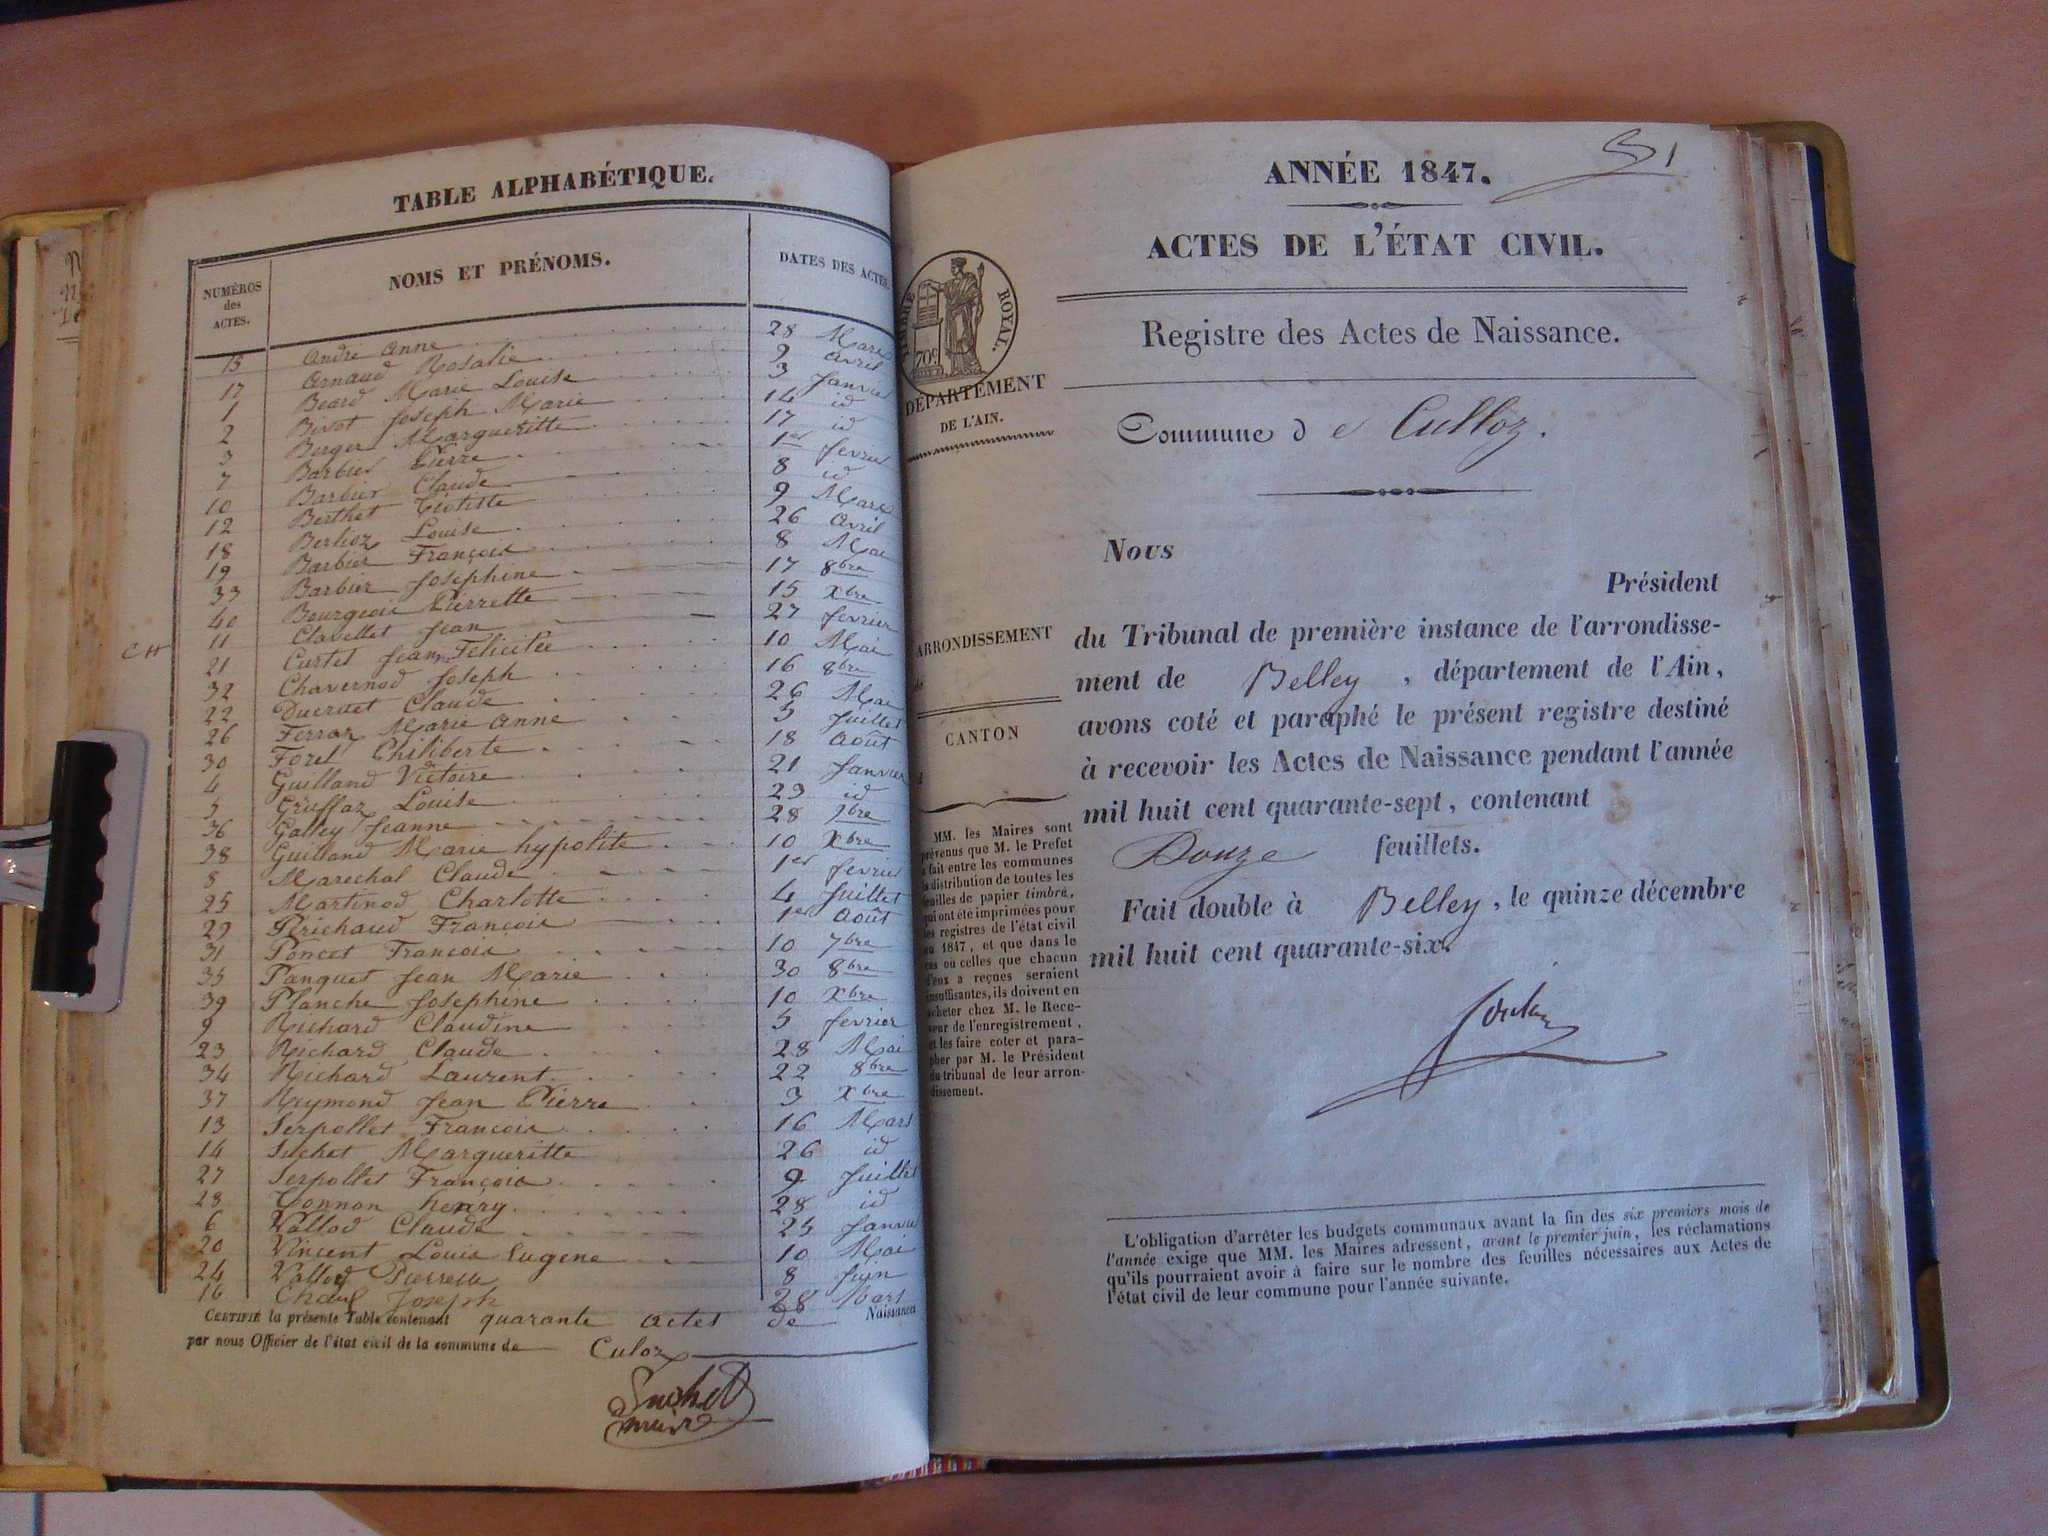 TABLE ALPHABÉTIQUE.
NUMÉROS des ACTES. NOMS ET PRÉNOMS. DATES DES ACTES.
15 André Anne 28 Mars
17 Arnaud Rosalie 9 avril
1 Beard Marie Louise 3 Janvier
2 Bivet Joseph Marie 14 id
3 Berger Margueritte 17 id
7 Barbier Pierre 1er fevrier
10 Barbier Claude 8 id
12 Berthet Téotiste 9 Mars
18 Berlioz Louise 26 avril
19 Barbier François 8 Mai
33 Barbier Josephine 17 8bre
40 Bourgeois Pierrette 15 Xbre
11 Clavellet Jean 27 fevrier
21 Curtet Jean Felicitée 10 Mai
32 Chavernod Joseph 16 8bre
22 Ducruet Claude 26 Mai
26 Ferraz Marie Anne 5 Juillet
30 Forel Philiberte 18 Août
4 Guilland Victoire 21 Janvier
5 Gruffaz Louise 23 id
36 Galley Jeanne 28 9bre
38 Guilland Marie hypolite 10 Xbre
8 Marechal Claude 1er fevrier
25 Martinod Charlotte 4 Juillet
29 Périchaud François 1er Août
31 Poncet François 10 7bre
35 Panquet Jean Marie 30 8bre
39 Planche Josephine 10 Xbre
9 Richard Claudine 5 fevrier
23 Richard Claude 28 Mai
34 Richard Laurent 22 8bre
37 Raymond Jean Pierre 3 Xbre
13 Serpollet François 16 Mars
14 Suchet Margueritte 26 id
27 Serpollet François 9 Juillet
28 Tonnon henry 28 id
6 Vallod Claude 25 Janvier
20 Vincent Louis Eugene 10 Mai
24 Vallod Pierrette 8 Juin
16 Joseph 28 Mars
CERTIFIÉ la présente Table contenant quarante actes de Naissances
par nous Officier de l'état civil de la commune de Culoz
Suchet
maire
1
ANNÉE 1847.
ACTES DE L'ÉTAT CIVIL.
TIMBRE ROYAL.
70c
DÉPARTEMENT
DE L'AIN.
Registre des Actes de Naissance.
Commune de Culloz.
Nous
Président
du Tribunal de première instance de l'arrondisse-
ment de Belley, département de l'Ain,
avons coté et paraphé le présent registre destiné
à recevoir les Actes de Naissance pendant l'année
mil huit cent quarante-sept, contenant
Douze feuillets.
Fait double à Belley, le quinze décembre
mil huit cent quarante-six.
ARRONDISSEMENT
de
CANTON
d
MM. les Maires sont
prévenus que M. le Préfet
a fait entre les communes
la distribution de toutes les
feuilles de papier timbré,
qui ont été imprimées pour
les registres de l'état civil
en 1847, et que dans le
cas où celles que chacun
d'eux a reçues seraient
insuffisantes, ils doivent en
acheter chez M. le Rece-
veur de l'enregistrement,
et les faire coter et para-
pher par M. le Président
du tribunal de leur arron-
dissement.
L'obligation d'arrêter les budgets communaux avant la fin des six premiers mois de
l'année exige que MM. les Maires adressent, avant le premier juin, les réclamations
qu'ils pourraient avoir à faire sur le nombre des feuilles nécessaires aux Actes de
l'état civil de leur commune pour l'année suivante.